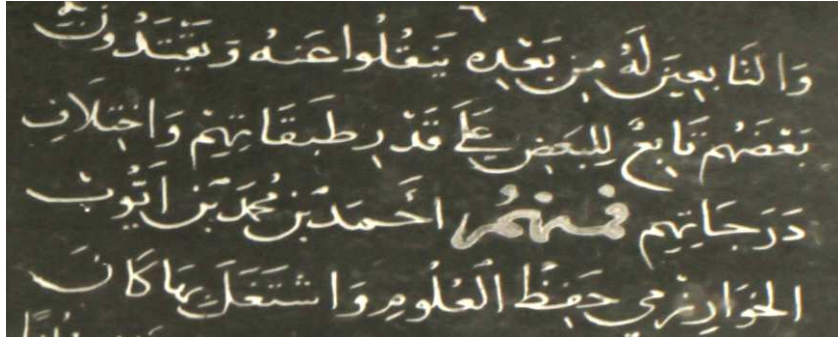 وَالتَابِعِينَ لَهُ مِن بَعْدِهِ يَنقُلُوا عَنهُ وَيَقْتَدُونَ
بَعْضَهُم تَابِعٌ لِلبَعضِ عَلَى قَدْرِ طَبَقَاتِهِمْ وَاخْتِلَافِ
دَرَجَاتِهِم فَمنهُمُ احَمَد بْن مُحمَد بْن اَيُّوب
الخوَارِزمي حَفِظَ العُلُومِ وَاشتَغَلَ بِهَا كَانَ